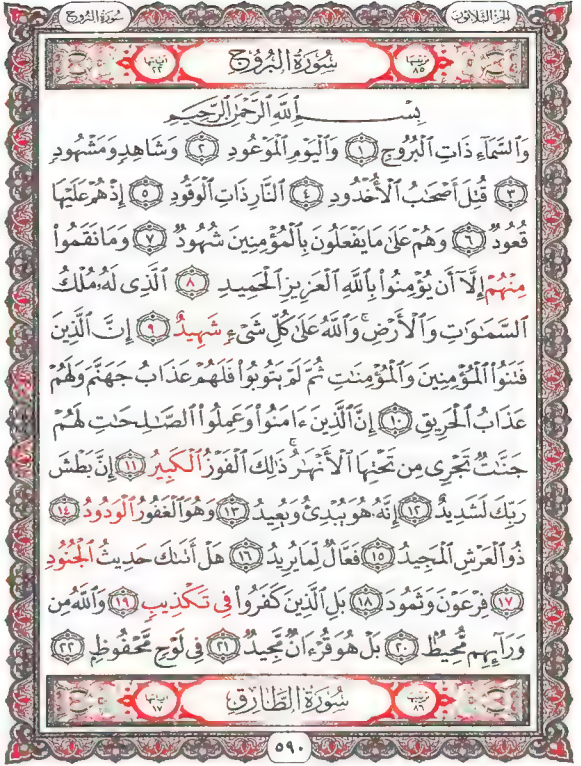 الجزء الثلاثون
سُورَةُ البُرُوج
ترتيبها ٨٥
سُورَةُ البُرُوجِ
آياتها ٢٢
بِسْمِ ٱللَّهِ ٱلرَّحْمَٰنِ ٱلرَّحِيمِ
وَٱلسَّمَآءِ ذَاتِ ٱلْبُرُوجِ ١ وَٱلْيَوْمِ ٱلْمَوْعُودِ ٢ وَشَاهِدٍ وَمَشْهُودٍ
٣ قُتِلَ أَصْحَٰبُ ٱلْأُخْدُودِ ٤ ٱلنَّارِ ذَاتِ ٱلْوَقُودِ ٥ إِذْ هُمْ عَلَيْهَا
قُعُودٌ ٦ وَهُمْ عَلَىٰ مَا يَفْعَلُونَ بِٱلْمُؤْمِنِينَ شُهُودٌ ٧ وَمَا نَقَمُوا۟
مِنْهُمْ إِلَّآ أَن يُؤْمِنُوا۟ بِٱللَّهِ ٱلْعَزِيزِ ٱلْحَمِيدِ ٨ ٱلَّذِى لَهُۥ مُلْكُ
ٱلسَّمَٰوَٰتِ وَٱلْأَرْضِ ۚ وَٱللَّهُ عَلَىٰ كُلِّ شَىْءٍ شَهِيدٌ ٩ إِنَّ ٱلَّذِينَ
فَتَنُوا۟ ٱلْمُؤْمِنِينَ وَٱلْمُؤْمِنَٰتِ ثُمَّ لَمْ يَتُوبُوا۟ فَلَهُمْ عَذَابُ جَهَنَّمَ وَلَهُمْ
عَذَابُ ٱلْحَرِيقِ ١٠ إِنَّ ٱلَّذِينَ ءَامَنُوا۟ وَعَمِلُوا۟ ٱلصَّٰلِحَٰتِ لَهُمْ
جَنَّٰتٌ تَجْرِى مِن تَحْتِهَا ٱلْأَنْهَٰرُ ۚ ذَٰلِكَ ٱلْفَوْزُ ٱلْكَبِيرُ ١١ إِنَّ بَطْشَ
رَبِّكَ لَشَدِيدٌ ١٢ إِنَّهُۥ هُوَ يُبْدِئُ وَيُعِيدُ ١٣ وَهُوَ ٱلْغَفُورُ ٱلْوَدُودُ ١٤
ذُو ٱلْعَرْشِ ٱلْمَجِيدُ ١٥ فَعَّالٌ لِّمَا يُرِيدُ ١٦ هَلْ أَتَىٰكَ حَدِيثُ ٱلْجُنُودِ
١٧ فِرْعَوْنَ وَثَمُودَ ١٨ بَلِ ٱلَّذِينَ كَفَرُوا۟ فِى تَكْذِيبٍ ١٩ وَٱللَّهُ مِن
وَرَآئِهِم مُّحِيطٌۢ ٢٠ بَلْ هُوَ قُرْءَانٌ مَّجِيدٌ ٢١ فِى لَوْحٍ مَّحْفُوظٍۭ ٢٢
ترتيبها ٨٦
سُورَةُ الطَّارِقِ
آياتها ١٧
٥٩٠